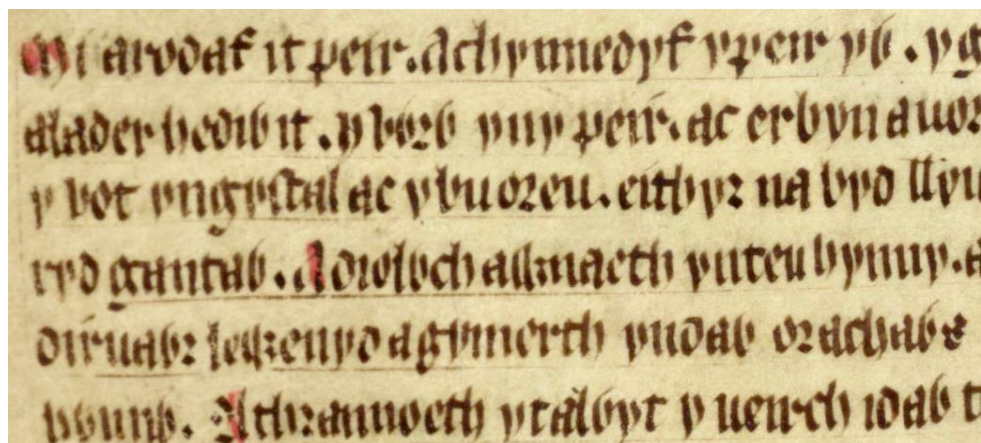 Mi arodaf it peir. Achynnedyf ypeir yỽ. yg
alader hediỽ it. y vỽrỽ yny peir. ac erbyn auor
y vot yngystal ac ybu oreu. eithyr na byd llyu
ryd gantaỽ. Adiolỽch aỽnaeth ynteu hynny. a
diruaỽr leỽenyd agymerth yndaỽ orachaỽs
hỽnnỽ. Athrannoeth ytalỽyt y ueirch idaỽ t